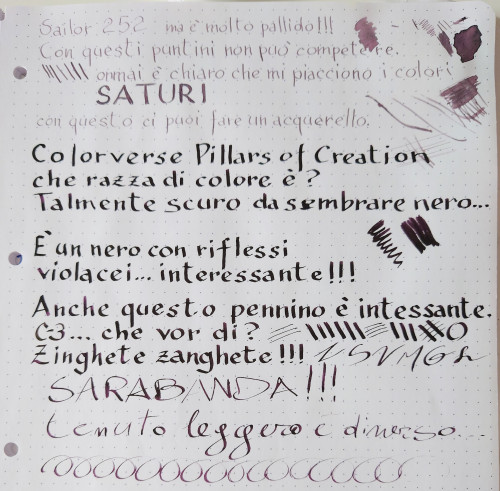 Sailor 252 ma è molto pallido!!!
Con questi puntini non può competere.
onmai è chiaro che mi piacciono i colori
SATURI
con questo ci puoi fare un acquerello.
Colorverse Pillars of Creation
che razza di colore è?
Talmente scuro da sembrare nero...
È un nero con riflessi
violacei... interessante!!!
Anche questo pennino è intessante.
C-3... che vor di?
Zinghete zanghete!!!
SARABANDA!!!
tenuto leggero è diverso...